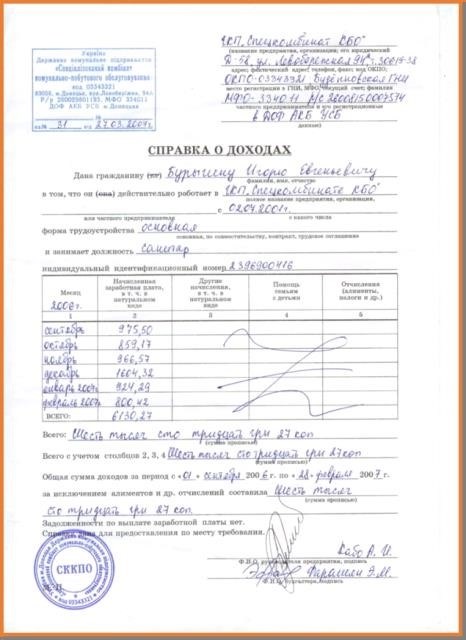 Україна
Державне комунальне підприємство
«Спеціалізований комбінат
комунально-побутового обслуговування»
код 03343321
ДОФ АКБ УСБ м.Донецька
на № 31 від 27.03.2007г.
ГКП „Спецкомбинат КБО"
(название предприятия, организации; его юридический
адрес; фактический адрес; телефон, факс; код ОКПО;
ОКПО-03343321 Будённовская ГНИ
место регистрации в ГНИ, МФО, текущий счет; фамилия
МФО-334011 Р/С 26008150007574
частного предпринимателя и его регистрационные
в ДОФ АКБ УСБ
данные)
СПРАВКА О ДОХОДАХ
Дана гражданину (ке) Бурыгину Игорю Евгеньевичу
фамилия, имя, отчество
в том, что он (она) действительно работает в ГКП „Спецкомбинате КБО"
полное название предприятия, организации,
с 02.04.2001г.
или частного предпринимателя с какого числа
форма трудоустройства основная
основная, по совместительству, контракт, трудовое соглашение
и занимает должность санитар
индивидуальный идентификационный номер 2396900416
Месяц
2006г.
Начисленная заработная плато, в т. ч. в натуральном виде
Другие начисления, в т. ч. в натуральном виде
Помощь семьям с детьми
Отчисления (алименты, налоги и др.)
1 2 3 4 5
сентябрь 975,50
октябрь 859,17
ноябрь 966,57
декабрь 1604,32
январь 2007г. 924,29
февраль 2007г. 800,42
ВСЕГО: 6130,27
Всего: Шесть тысяч сто тридцать три 27 коп
(сумма прописью)
Всего с учетом столбцов 2, 3, 4 Шесть тысяч сто тридцать три 27 коп
(сумма прописью)
Общая сумма доходов за период с «01» сентября 2006 г. по «28» февраля 2007 г.
за исключением алиментов и др. отчислений составила Шесть тысяч
(сумма прописью)
сто тридцать три 27 коп.
Задолженности по выплате заработной платы нет.
Справка для предоставления по месту требования.
Кабо А. И.
Ф.И.О. руководителя предприятия, подпись
Э.М.
Ф.И.О. бухгалтера, подпись
СККПО
код 03343321